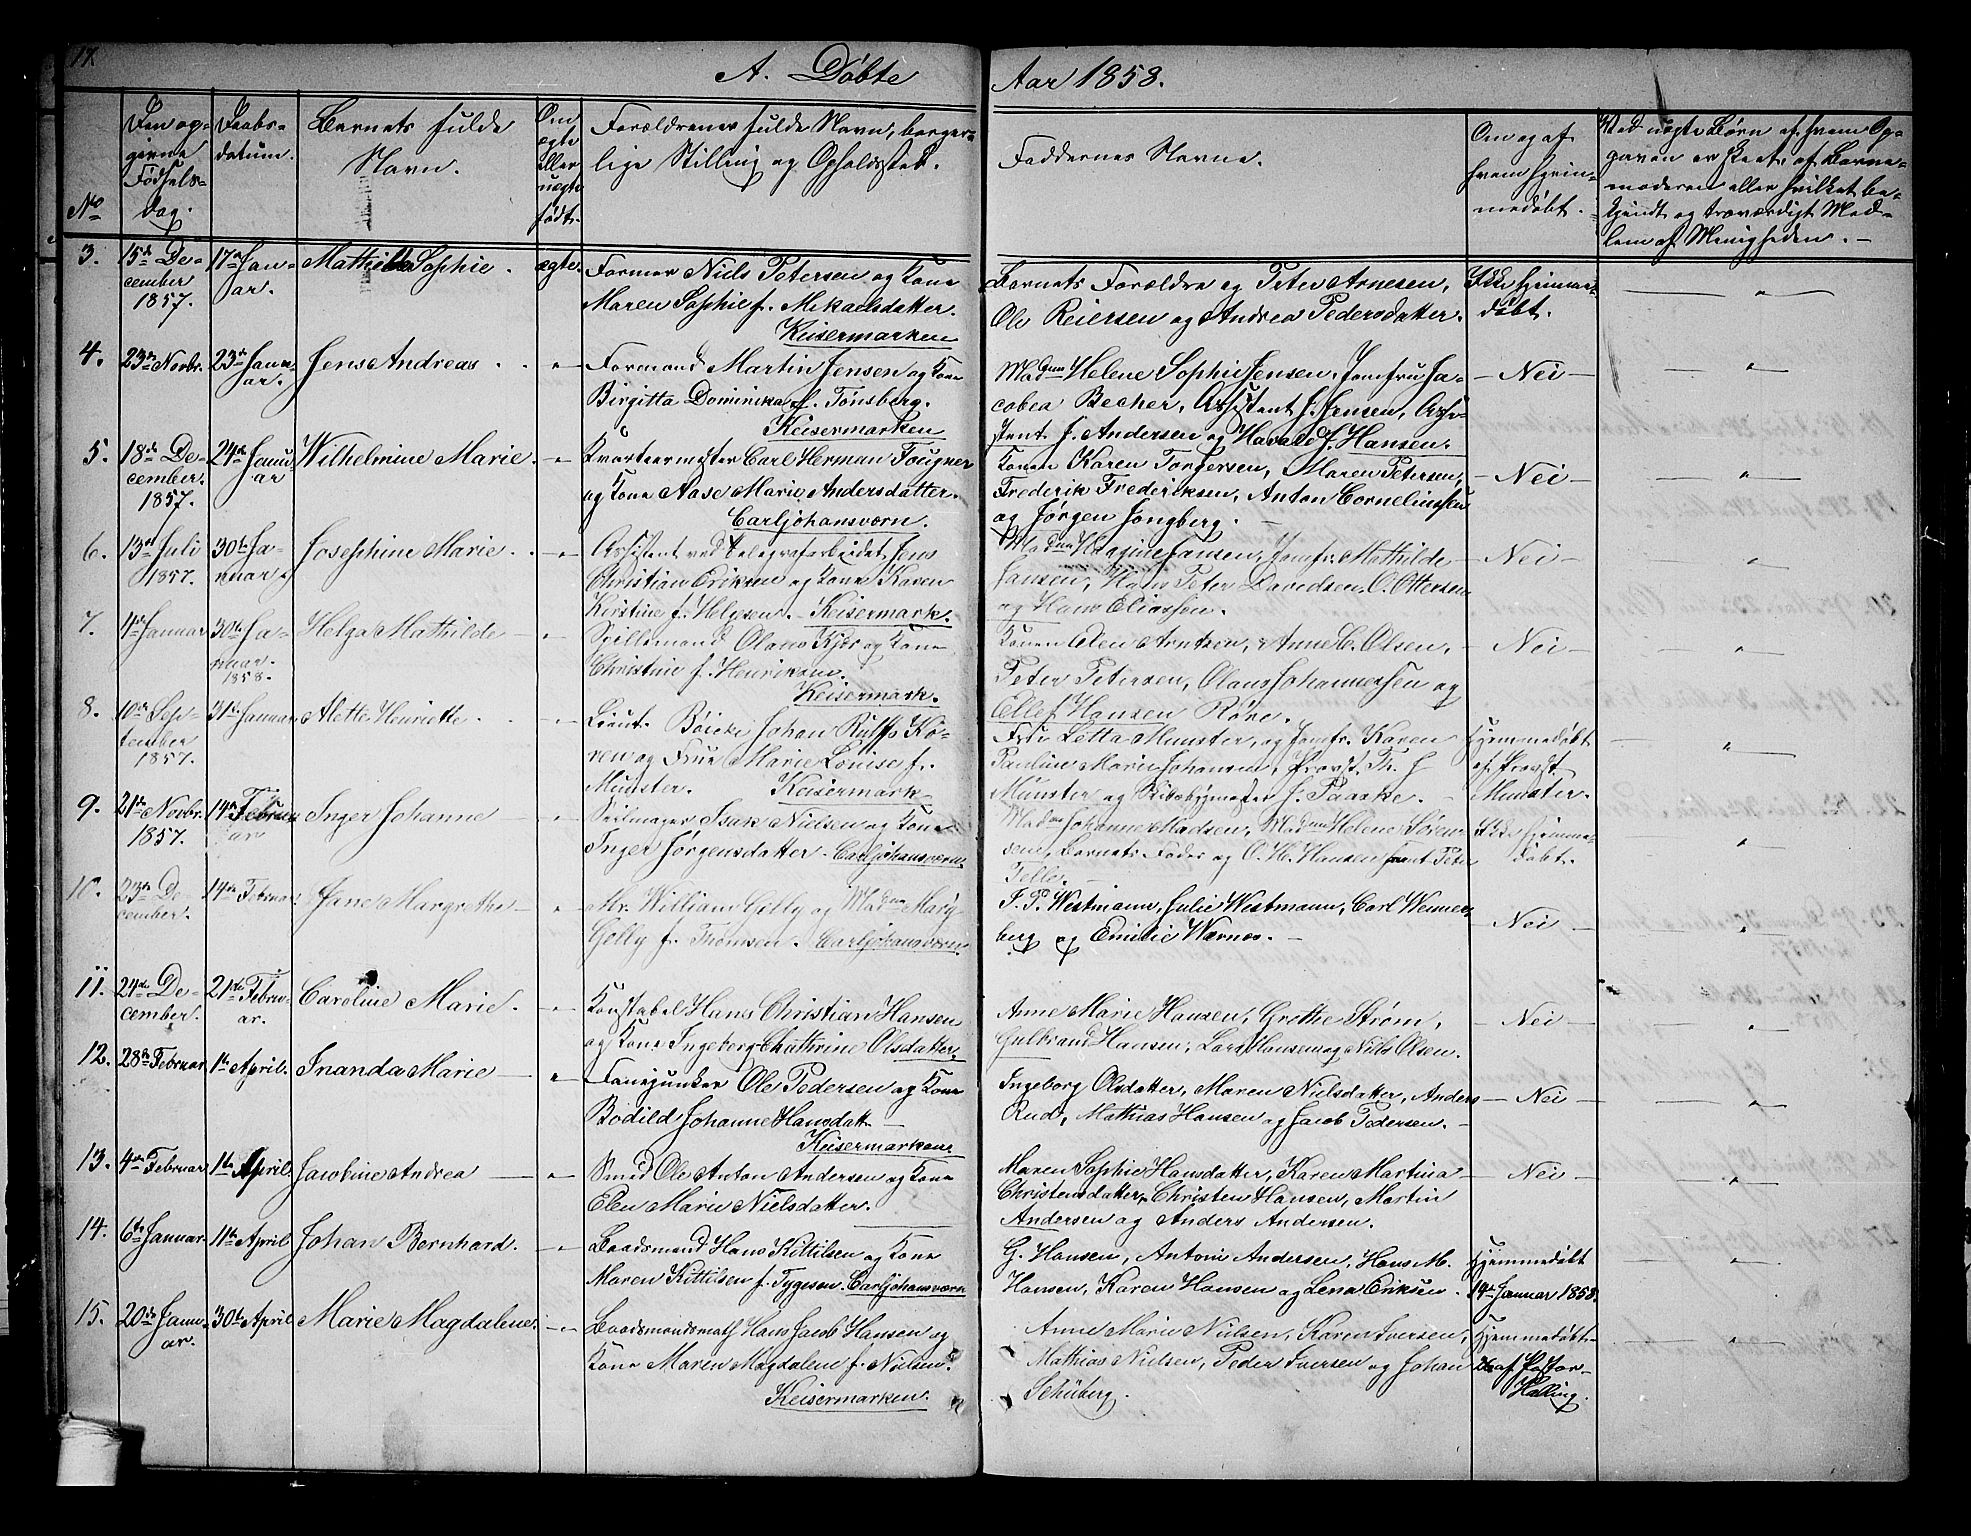 17.
A. Døbte
Aar 1858.
No
Den op-
givne
Fødsels-
dag.
Daabs-
datum.
Barnets fulde
Navn.
Om
ægte
eller
uægte
født.
Forældrenes fulde Navn, borger-
lige Stilling og Opholdssted.
Faddernes Navne.
Om og af
hvem hjem-
medøbt.
Ved uægte Børn af hvem Op-
gaven er skeet, af Barne-
moderen eller hvilket be-
kjendt og troværdigt Med-
lem af Menigheden. —
3. 15de De-
cember
1857.
17de Janu-
ar.
Mathilde Sophie.
ægte.
Niels Petersen og Kone
Maren Sophie f. Mekaelsdatter.
Keisermarken
Barnets Forældre og Peter Arnesen,
Ole Reiersen og Andrea Pedersdatter.
Ikke hjemme-
døbt.
4. 23de Novbr.
23de Janu-
ar.
Jens Andreas
Formand Martin Jensen og Kone
Birgitta Dominika f. Tønsberg.
Keisermarken
Madmm Helene Sophie Jensen, Jomfru Ja-
cobea Becher, Assistent J. Jensen, Assi-
stent J. Andersen og Harald J. Hansen.
— Nei —
5. 18de De-
cember.
1857.
24de Janu-
ar
Wilhelmine Marie.
Kvarteermester Carl Herman Fougner
og Kone Aase Marie Andersdatter.
Carljohansværn.
Konen Karen Torgersen, Maren Petersen,
Frederik Frederiksen, Anton Corneliussen
og Jørgen Jongberg. —
— Nei —
6. 13de Juli
1857.
30te Ja-
nuar
Josephine Marie
Assistent ved Telegrafarbeidet Jens
Christian Eriksen og Kone Karen
Kirstine f. Helgesen. Keisermark.
Jansen, Jomfr. Mathilde
Jansen, Hans Peter Davidsen, O. Ottersen
og Hans Eliassen.
— Nei —
7. 4de Januar
30te Ja-
nuar.
1858.
Helga Mathilde
Spillemand Olans Kjær og Kone
Christine f. Henriksen.
Keisermark.
Konen Elen Arntzen, Anne C. Olsen,
Peter Petersen, Olans Johannessen og
Ellef Hansen Røre.
— Nei —
8. 10de Sep-
tember
1857.
31te Januar
Alette Henriette.
Lieut. Johan Rulffs Ko-
ren og Frue Marie Louise f.
Munster. Keisermark
Fru Letta Munster, og Jomfr. Karen
Pauline Marie Johansen, Provst Th. J
Munster og J. Paaske.
Hjemmedøbt
af Provst
Munster.
9. 21de Novbr.
1857.
14de Februar
Inger Johanne
Seilmager Isak Nielsen og Kone
Inger Jørgensdatter. Carljohansværn.
Madm Johanne Madsen, Madmm Helene Søren-
sene, Barnets Fader og O. H. Hansen samt Peter
Telle.
Ikke hjemme-
døbt.
10. 23de De-
cember.
14de Februar
Jane Margrethe
Mr. William Gelly og Madmm Mary
Gelly f. Thomsen. Carljohansværn.
J. P. Westmann, Julie Westmann, Carl Wenners-
berg og Emilie Wærnes. —
— Nei —
11. 24de De-
cember.
21de Febru-
ar.
Caroline Marie.
Konstabel Hans Christian Hansen
og Kone Ingeborg Chathrine Olsdatter.
Anne Marie Hansen, Grethe Strøm,
Gulbrand Hansen, Lars Hansen og Niels Olsen.
— Nei —
12. 28de Februar
1te April.
Inanda Marie
Fanejunker Ole Pedersen og Kone
Bodild Johanne Hansdatt.
Keisermarken.
Ingeborg Olsdatter, Maren Nielsdatter, Anders
Rud, Mathias Hansen og Jacob Pedersen. —
— Nei —
13. 4de Februar
1te April
Jacobine Andrea
Smed Ole Anton Andersen og Kone
Elen Marie Nielsdatter.
Maren Sophie Hansdatter, Karen Martina
Christensdatter, Christen Hansen, Martin
Andersen og Anders Andersen.
— Nei
14. 6te Januar.
11te April
Johan Bernhard.
Baadsmand Hans Kittilsen og Kone
Maren Kittilsen f. Tygesen. Carljohansværn
G. Hansen, Antoni Andersen, Hans M.
Hansen, Karen Hansen og Lena Eriksen.
Hjemmedøbt
19de Januar 1858.
15. 20de Janu-
ar.
30te April
Marie Magdalene.
Baadsmandsmath Hans Jacob Hansen og
Kone Maren Magdalene f. Nielsen.
Keisermarken.
Anne Marie Nielsen, Karen Iversen,
Mathias Nielsen, Peder Iversen og Johan
Schüberg.
Hjemmedøbt
af Pastor
Halling.